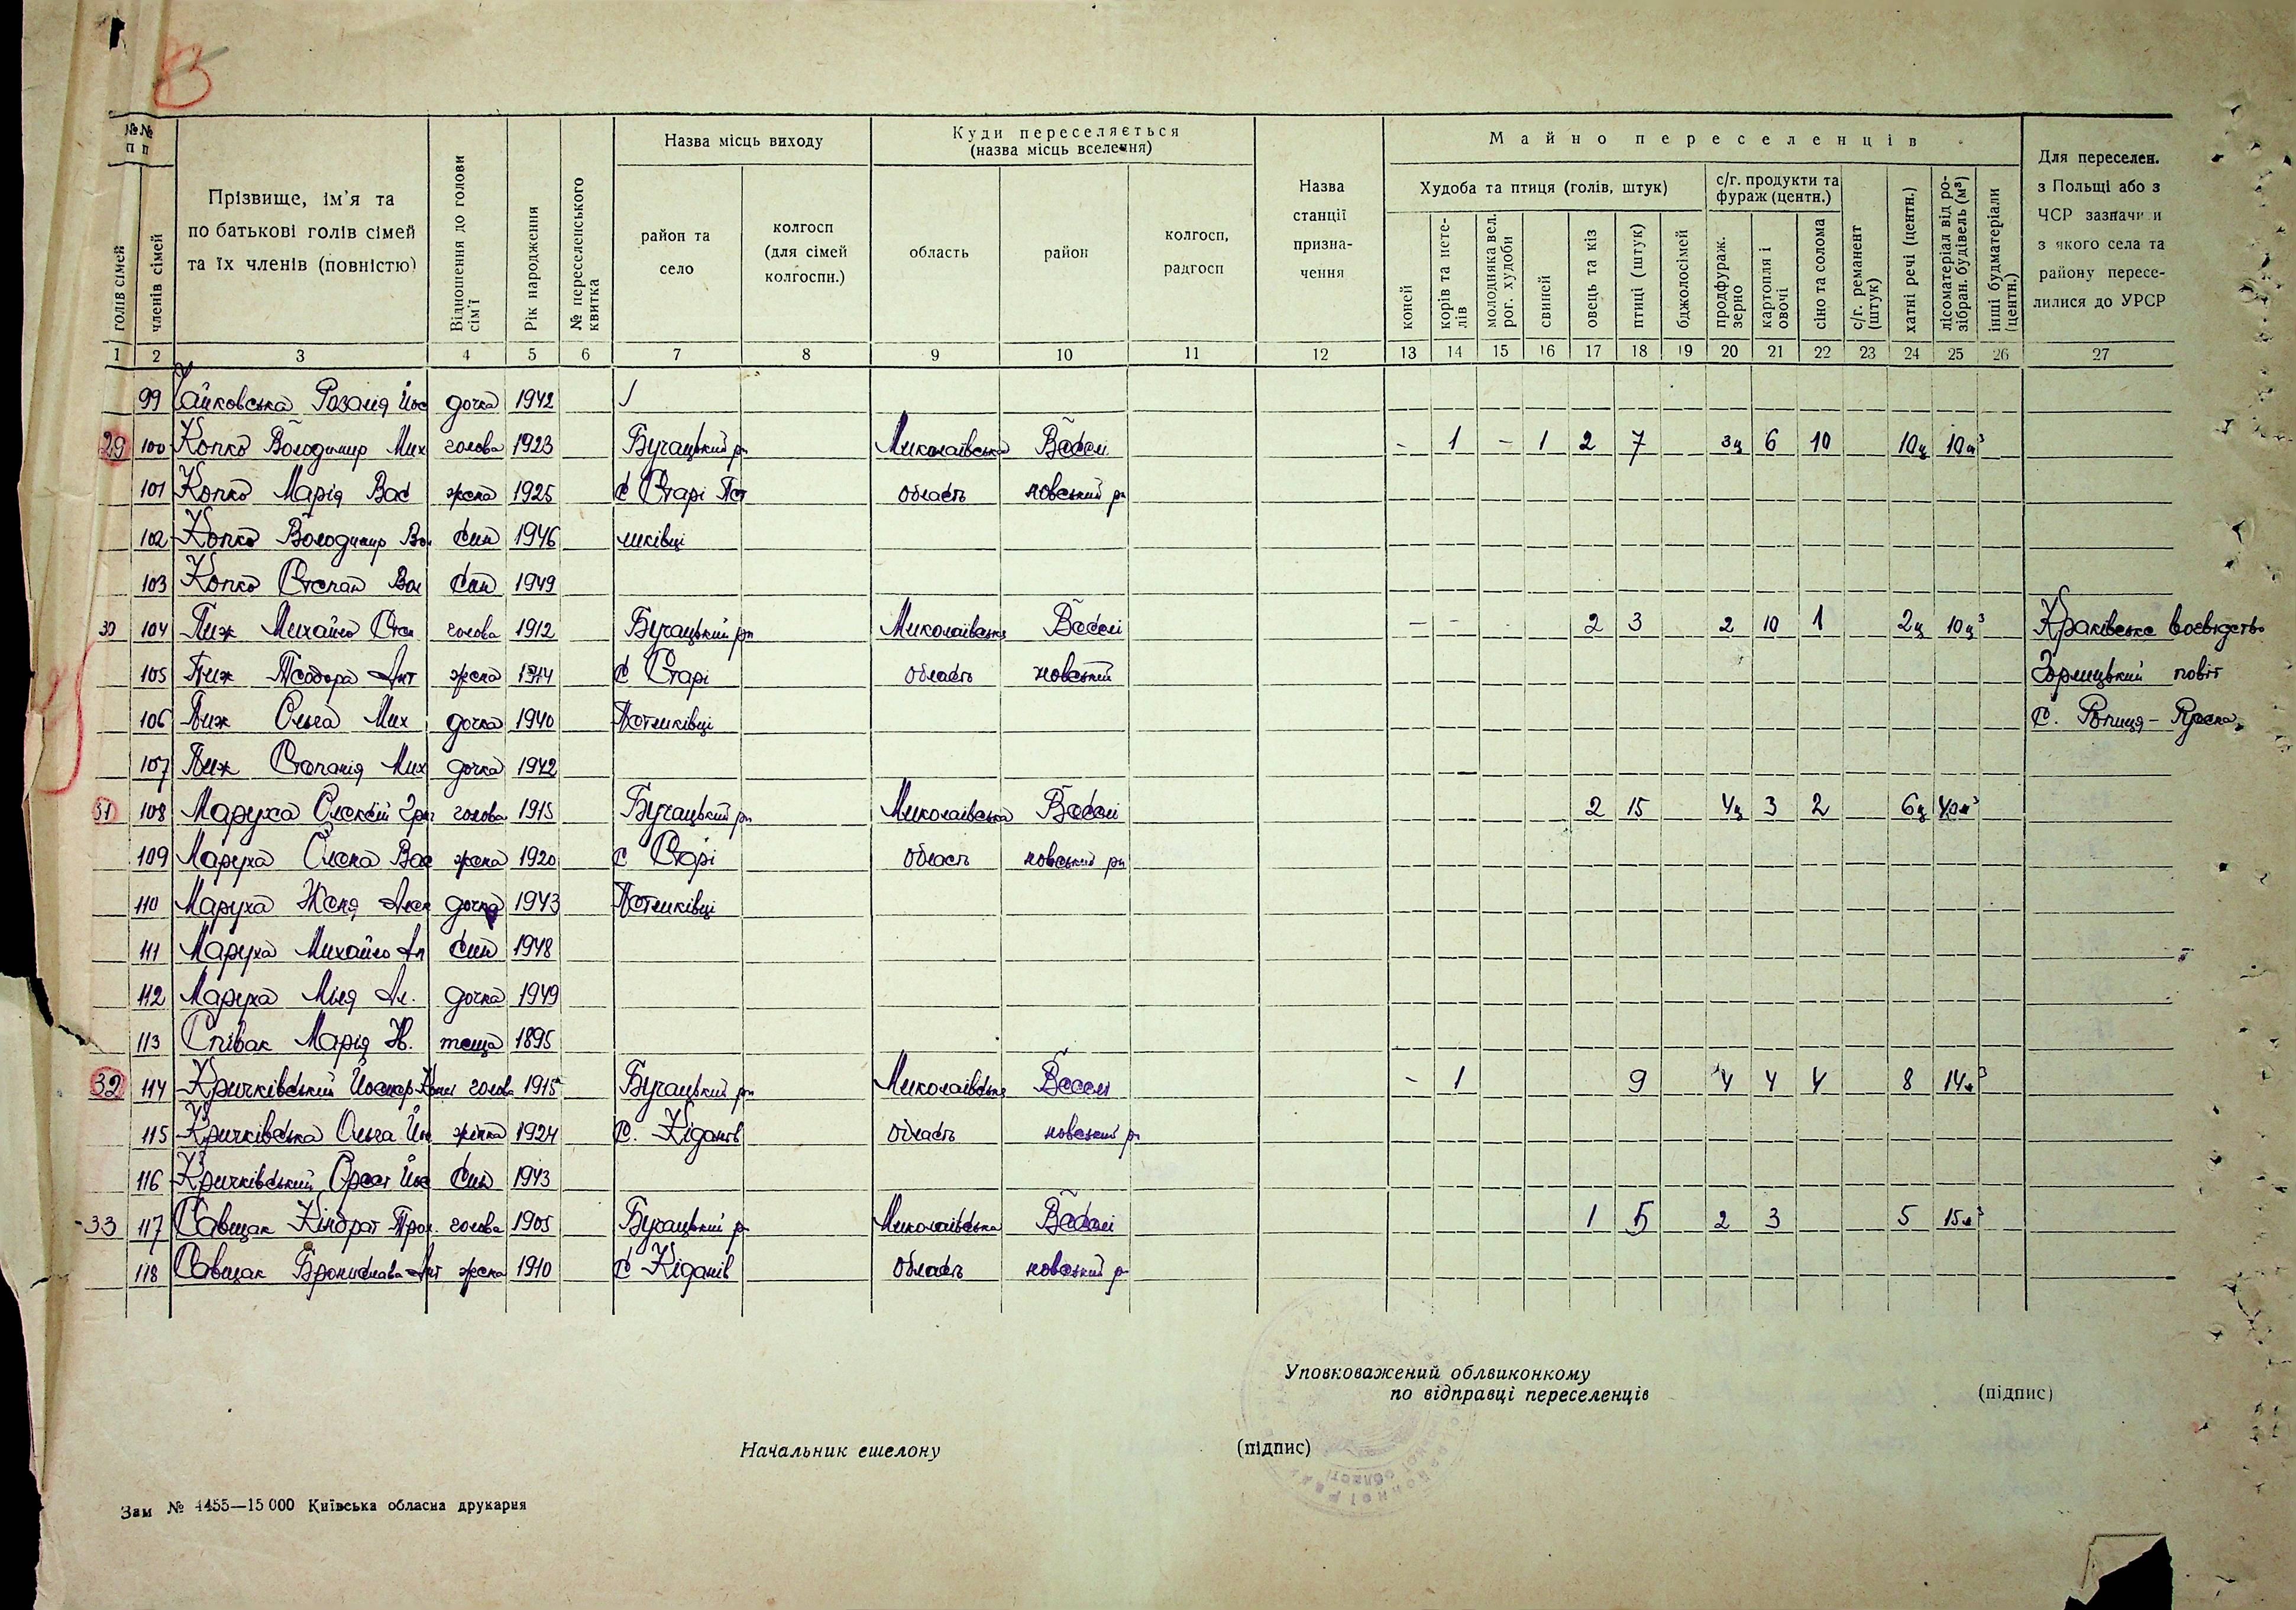 №№ п п
голів сімей
членів сімей
Прізвище, ім'я та по батькові голів сімей та їх членів (повністю)
Відношення до голови сім'ї
Рік народження
№ переселенського квитка
Назва місць виходу
район та село
колгосп (для сімей колгоспн.)
Куди переселяється (назва місць вселення)
область
район
колгосп, радгосп
Назва станції призначення
Майно переселенців
Худоба та птиця (голів, штук)
коней
корів та нетелів
молодняка вел. рог. худоби
свиней
овець та кіз
птиці (штук)
бджолосімей
с/г. продукти та фураж (центн.)
продфураж. зерно
картопля і овочі
сіно та солома
с/г. реманент (штук)
хатні речі (центн.)
лісоматеріал від розібран. будівель (м³)
інші будматеріали (центн.)
Для переселен. з Польщі або з ЧСР зазначи и з якого села та району переселилися до УРСР
1 2 3 4 5 6 7 8 9 10 11 12 13 14 15 16 17 18 19 20 21 22 23 24 25 26 27
99 Чайковська Розалія Йос дочка 1942
29 100 Копко Володимир Мих голова 1923 Бучацький рн Миколаївська Весели - 1 - 1 2 7 3ц 6 10 10ц 10м³
101 Копко Марія Вас жена 1925 с Старі Пет область новський рн
102 Копко Володимир Во син 1946 ликівці
103 Копко Степан Вол син 1949
30 104 Пиж Михайло Сте голова 1912 Бучацький рн Миколаївська Весели - - 2 3 2 10 1 2ц 10ц³ Краківське воєвудство
105 Пиж Теодора Ант жена 1914 с Старі область новський Горлицький повіт
106 Пиж Ольга Мих дочка 1940 Петликівці с. Ропиця - Руска
107 Пиж Стопанія Мих дочка 1942
31 108 Маруха Олексій Гри голова 1915 Бучацький рн Миколаївська Весели 2 15 4ц 3 2 6ц 40м³
109 Маруха Олена Вас жена 1920 с Старі область новський рн
110 Маруха Женя Алек дочка 1943 Петликівці
111 Маруха Михайло Ал син 1948
112 Маруха Міля Ал. дочка 1949
113 Співак Марія Ю. теща 1895
32 114 Кричківський Йосип голова 1915 Бучацький рн Миколаївська Весели - 1 9 4 4 4 8 14м³
115 Кричківська Ольга Йо жінка 1924 с. Кіданів область новський р
116 Кричківський Орест Йос син 1943
33 117 Савицак Кіндрат Прок. голова 1905 Бучацький р Миколаївська Весели 1 5 2 3 5 15м³
118 Савицак Броніслава Ант жена 1910 с Кіданів область новський р
Уповковажений облвиконкому
по відправці переселенців
(підпис)
Начальник ешелону
(підпис)
Зам № 4455—15 000 Київська обласна друкарня